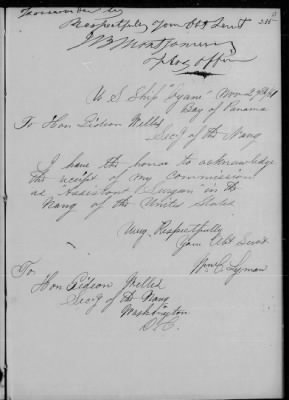 Forwarded by
Respectfully Your Obt Servt
J B Montgomery
Flag Officer
U S Ship "Cyane" Nov 27th/61
Bay of Panama
To Hon Gideon Welles
Secy of the Navy
I have the honor to acknowledge
the receipt of my commission
as "Assistant Surgeon" in the
Navy of the United States
Very Respectfully
Your Obt Servt.
Wm C. Lyman
To
Hon Gideon Welles
Secy of the Navy
Washington
D.C.